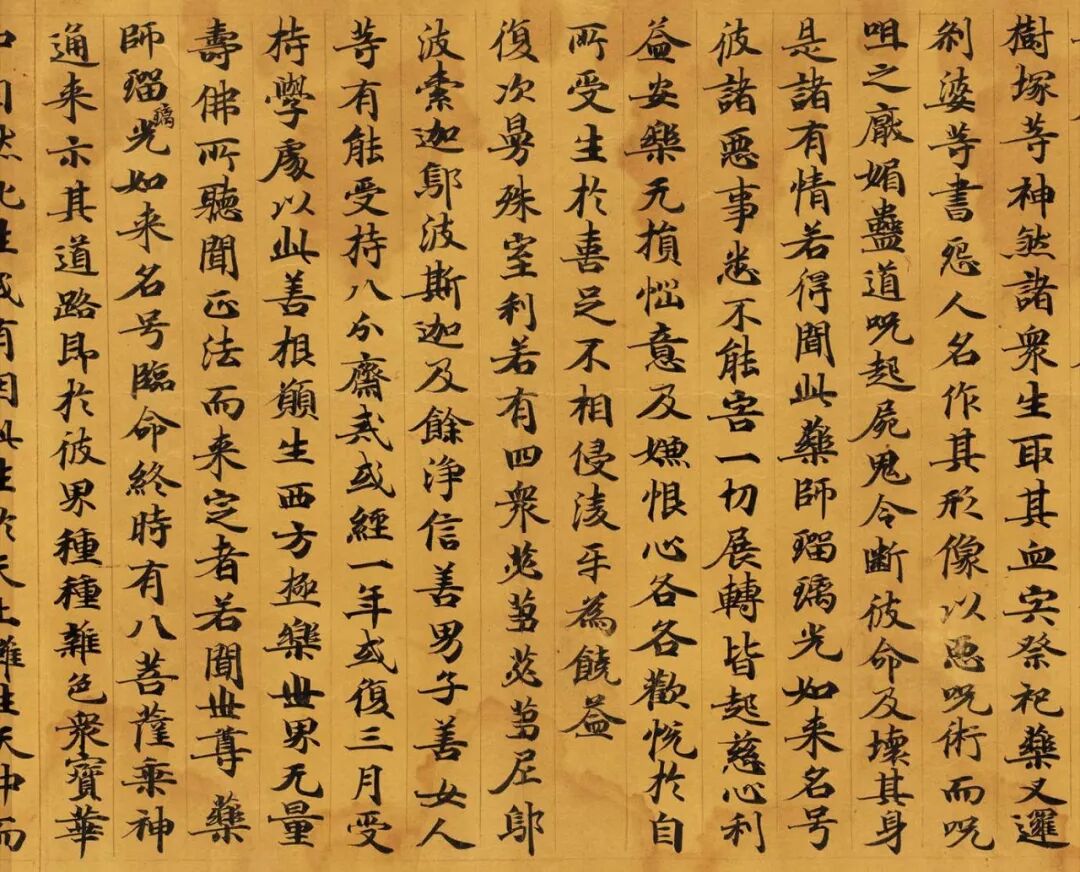 樹塚等神然諸衆生取其血宍祭祀藥叉邏
刹婆等書怨人名作其形像以惡呪術而呪
咀之厭媚蠱道呪起屍鬼令斷彼命及壞其身
是諸有情若得聞此藥師瑠璃光如来名号
彼諸惡事悉不能害一切展轉皆起慈心利
益安樂无損惱意及嫌恨心各各歡悅於自
所受生於喜足不相侵淩互為饒益
復次曼殊室利若有四衆苾芻苾芻尼鄔
波索迦鄔波斯迦及餘淨信善男子善女人
等有能受持八分齋戒或經一年或復三月受
持學處以此善根願生西方極樂世界无量
壽佛所聽聞正法而来定者若聞世尊藥
師瑠璃光如来名号臨命終時有八菩薩乗神
通来示其道路即於彼界種種雜色衆寶華
中自然化生或有因此生於天上雖生天中而